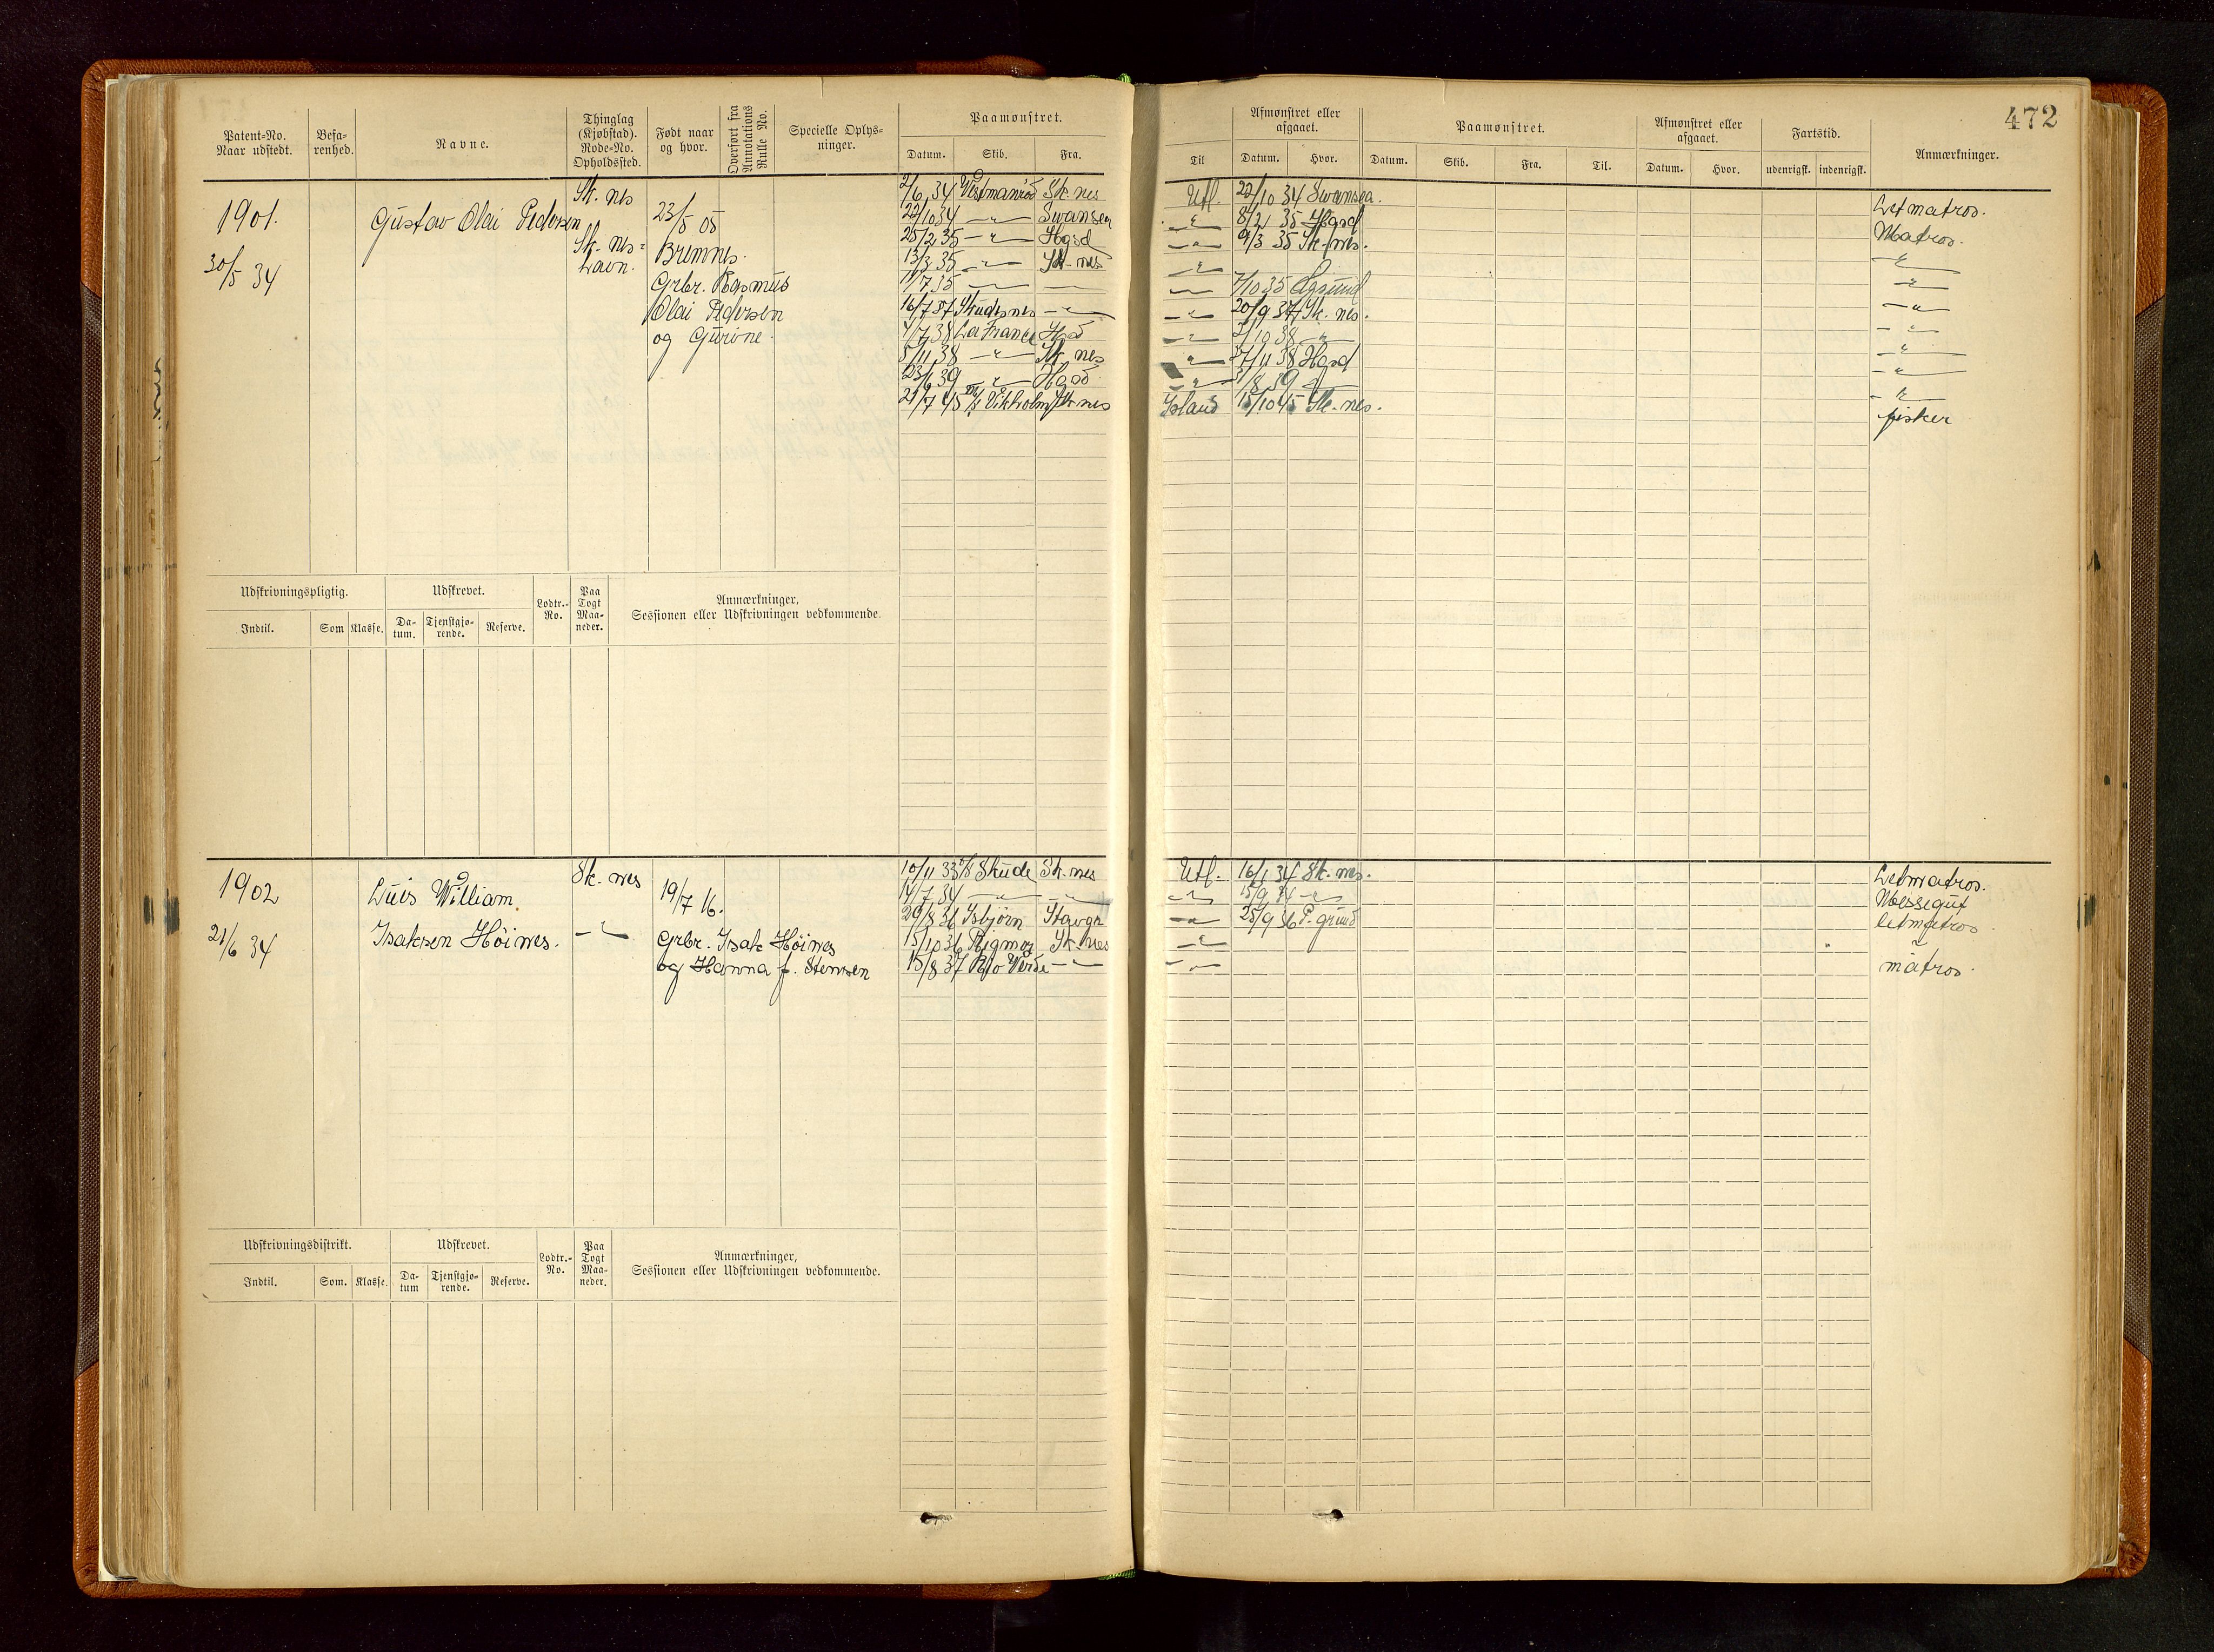 472
Patent-No. Naar udstedt.
Befa-renhed.
Navne.
Thinglag (Kjøbstad). Rode-No. Opholdssted.
Født naar og hvor.
Overført fra Annotations Rulle No.
Specielle Oplys-ninger.
Paamønstret.
Datum. Skib. Fra. Til
Afmønstret eller afgaaet.
Datum. Hvor.
Paamønstret.
Datum. Skib. Fra. Til.
Afmønstret eller afgaaet.
Datum. Hvor.
Fartstid.
udenrigsk. indenrigsk.
Anmærkninger.
1901.
30/5 34
Gustav Olai Pedersen
Sk. nes
Sk. nes =
Lavn.
23/5 05
Bremnes.
Grbr. Rasmus
Olai Pedersen
og Gurine.
2/6 34 Vestmanrød Sk. nes Utl. 22/10 34 Swansea. Letmatros.
22/10 34 -"- Swansea -"- 8/2 35 Hgsd Matros.
25/2 35 -"- Hgsd -"- 9/3 35 Sk. nes. -"-
13/3 35 -"- Sk. nes -"- -"-
11/7 35 -"- -"- -"- 7/10 35 -"-
16/7 37 Skudesnes -"- -"- 20/9 37 Sk. nes. -"-
4/7 38 La France Hgsd -"- 2/10 38 -"- -"-
5/11 38 -"- Sk. nes -"- 27/11 38 Hgsd -"-
23/6 39 -"- Hgsd -"- 3/8 39 -"- -"-
21/7 45 M/S Vikholm Sk. nes Island 15/10 45 Sk. nes. fisker
Udskrivningspligtig.
Indtil. Som Klasse.
Udskrevet.
Da-tum. Tjenstgjø-rende. Reserve.
Lodtr.-No.
Paa Togt Maa-neder.
Anmærkninger,
Sessionen eller Udskrivningen vedkommende.
1902
21/6 34
Luis William
Isaksen Höines.
Sk. nes
-"-
19/7 16.
Grbr. Isak Höines
og Hanna f. Stensen
10/11 33 D/S Skude Sk. nes Utl. 16/1 34 Sk. nes. Letmatros.
14/7 34 -"- -"- -"- 15/9 34 -"- Messegut
29/8 36 Isbjörn Stavgr -"- 25/9 36 P. grund letmatros
15/10 36 Rigmor Sk. nes -"- "
15/8 37 Rio Verde -"- -"- matros.
Udskrivningsdistrikt.
Indtil. Som. Klasse.
Udskrevet.
Da-tum Tjenstgjø-rende. Reserve.
Lodtr.-No.
Paa Togt Maa-neder.
Anmærkninger,
Sessionen eller Udskrivningen vedkommende.